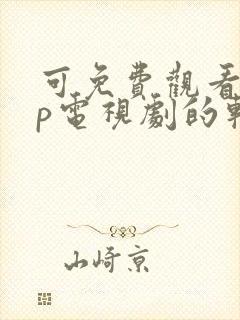 可免費觀看
p電視劇的軟
山崎京